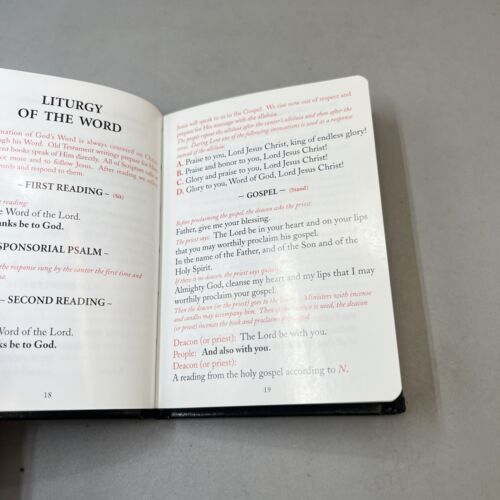 LITURGY
OF THE WORD
of God's Word is always centered on Christ
his Word. Old Testament writings prepare for His
books speak of Him directly. All of Scripture
more and to follow Jesus. After reading we
words and respond to them.
– FIRST READING – (Sit)
reading:
Word of the Lord.
be to God.
PSALM –
the response sung by the cantor the first time and
time.
– SECOND READING –
Word of the Lord.
be to God.
18
Jesus will speak to us in the Gospel. We rise now out of respect and
prepare for His message with the alleluia.
The people repeat the alleluia after the cantor's alleluia and then after the
verse. During Lent one of the following invocations is used as a response
instead of the alleluia:
A. Praise to you, Lord Jesus Christ, king of endless glory!
B. Praise and honor to you, Lord Jesus Christ!
C. Glory and praise to you, Lord Jesus Christ!
D. Glory to you, Word of God, Lord Jesus Christ!
– GOSPEL – (Stand)
Before proclaiming the gospel, the deacon asks the priest:
Father, give me your blessing.
The priest says: The Lord be in your heart and on your lips
that you may worthily proclaim his gospel.
In the name of the Father, and of the Son and of the
Holy Spirit.
If there is no deacon, the priest says quietly:
Almighty God, cleanse my heart and my lips that I may
worthily proclaim your gospel.
Then the deacon (or the priest) goes to the Ministers with incense
and candles may accompany him. Then if incense is used, the deacon
(or priest) incenses the book and proclaims
Deacon (or priest): The Lord be with you.
People: And also with you.
Deacon (or priest):
A reading from the holy gospel according to N.
19